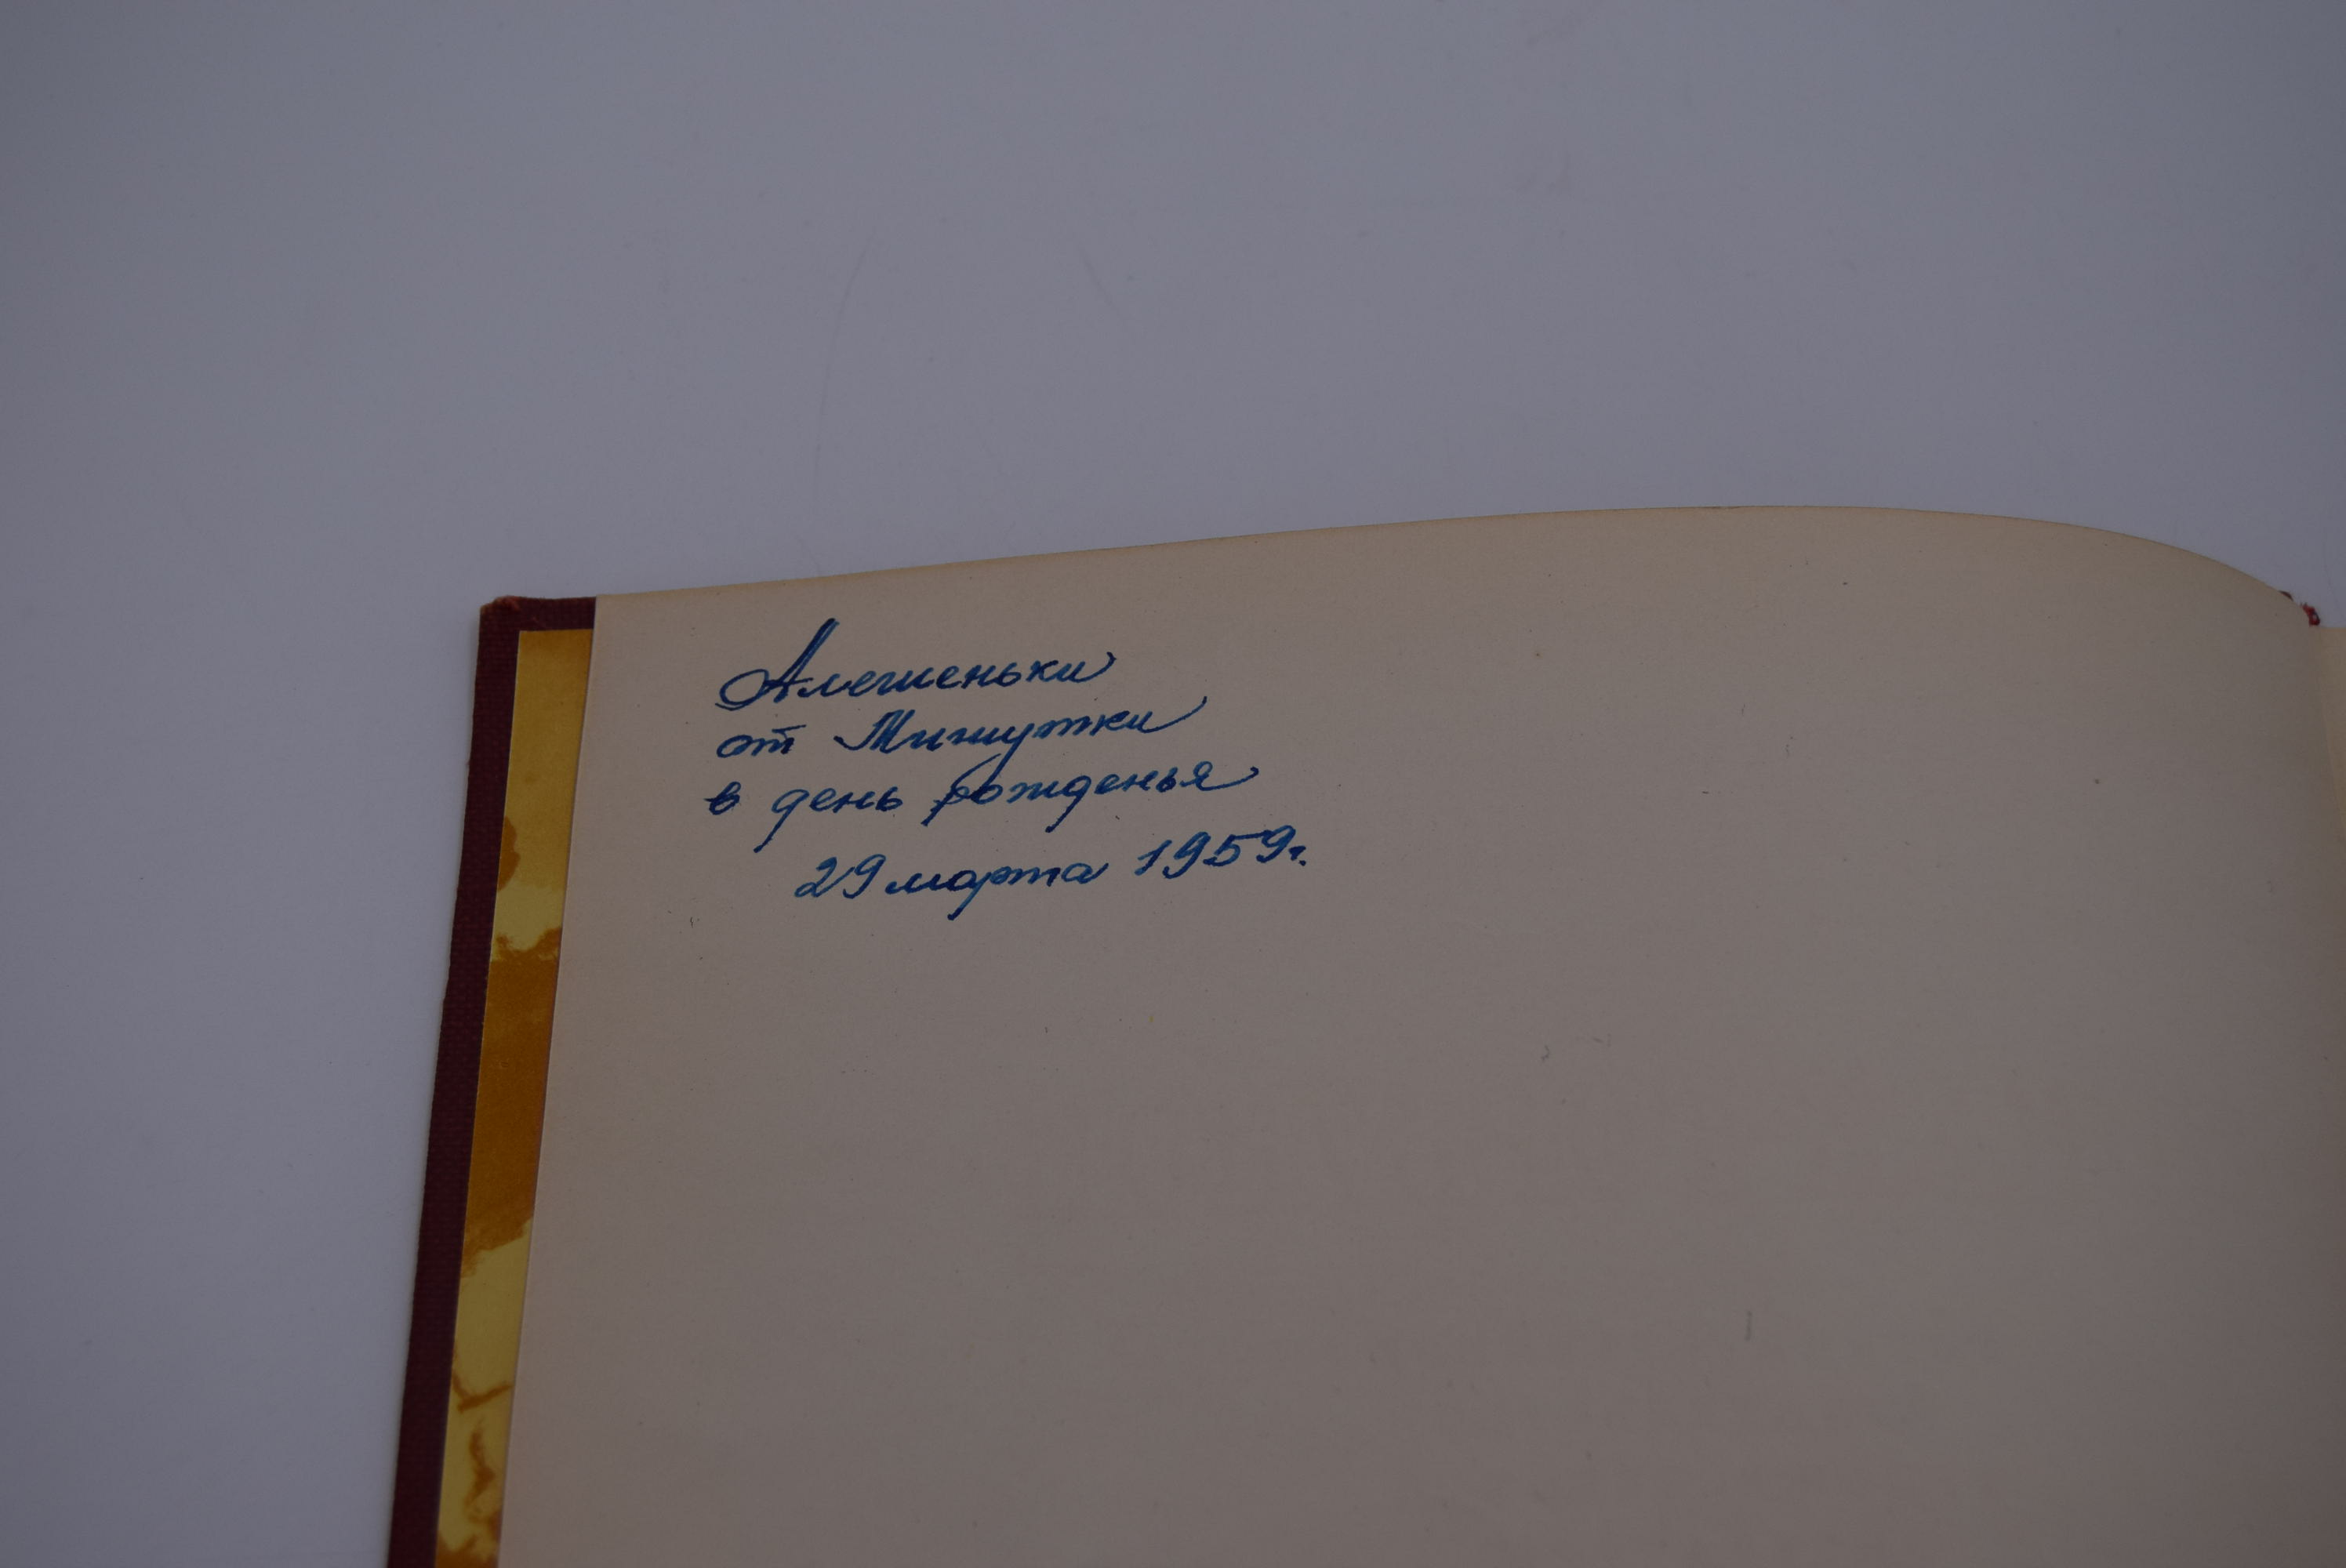 Алешеньки
от Мишутки
в день рожденья
29 марта 1959г.